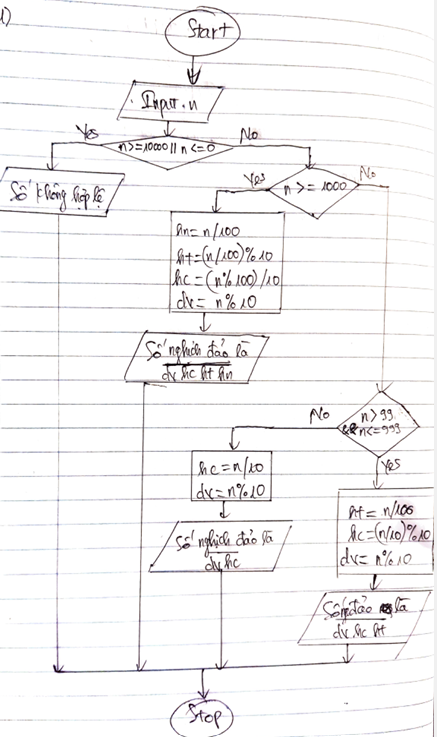 1)
Start
Input n
n>=10000 || n<=0
Yes
No
Số không hợp lệ
n >= 1000
Yes
No
hn = n/100
ht = (n/100)%10
hc = (n%100)/10
dv = n%10
Số nghịch đảo là
dv hc ht hn
n>99
&& n<=999
No
Yes
hc = n/10
dv = n%10
Số nghịch đảo là
dv hc
ht = n/100
hc = (n/10)%10
dv = n%10
đảo là
dv hc ht
Stop